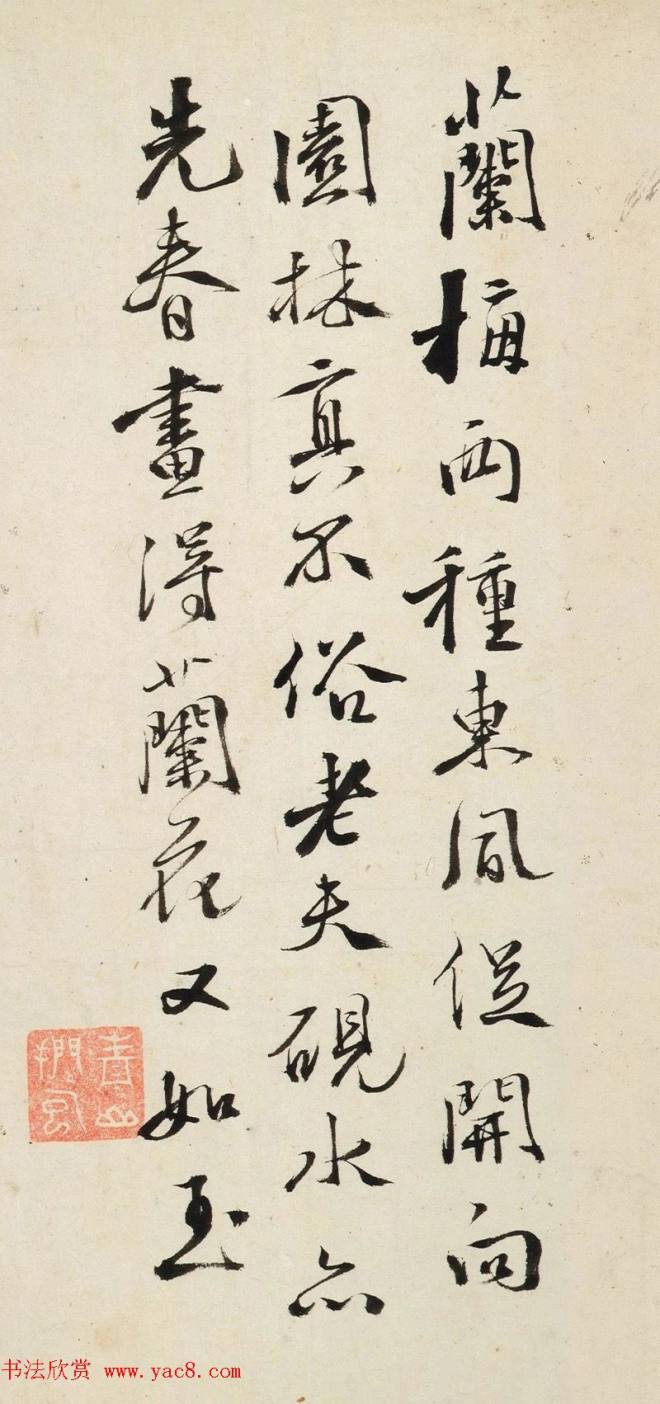 蘭梅兩種東風促開向
園林真不俗老夫硯水亦
先春畫得蘭花又如玉
書法欣赏 www.yac8.com